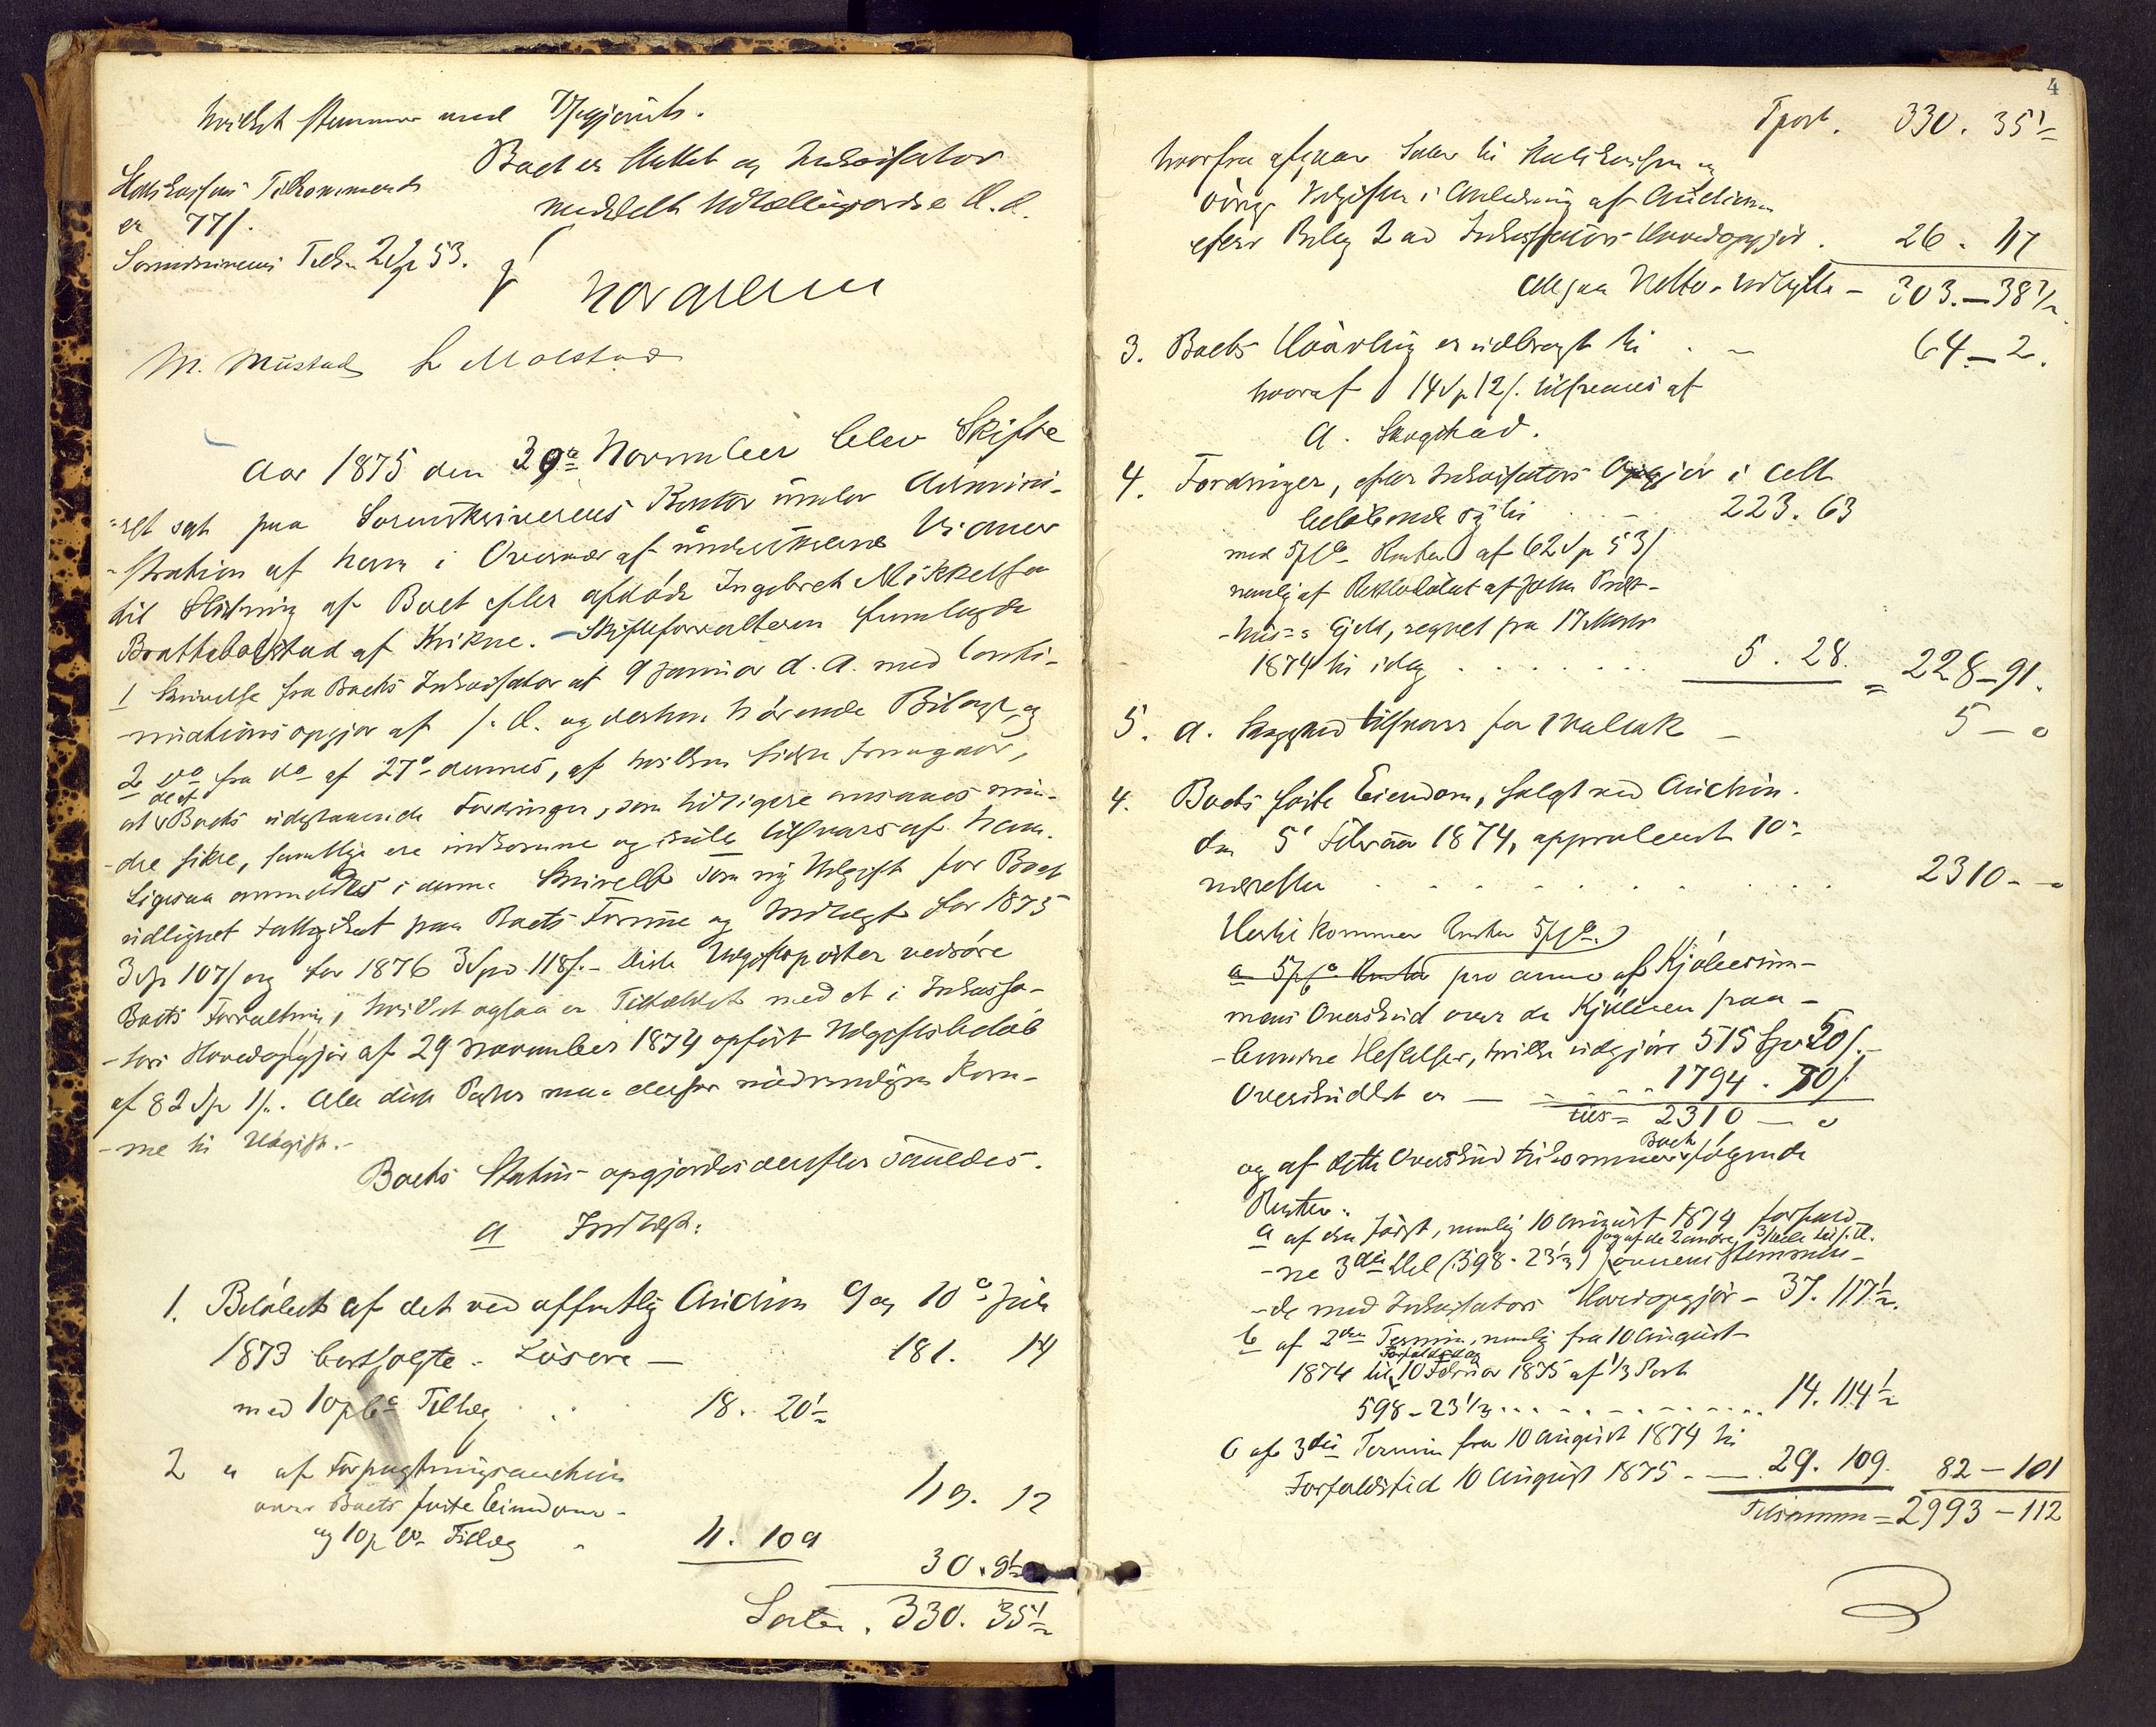 hvilket stemmer med Opgjørets.
Boet er sluttet og Inkassator
meddelt Udlodningsordre d. d.
er 77/.
Sorenskriverens Tilk. 2 Sp 53.
M. Mustad L Molstad
Aar 1875 den 30te November blev Skifte
-ret sat paa Sorenskriverens Kontor under Admini-
-stration af ham i Overvær af undertegnede Vidner
til Slutning af Boet efter afdøde Ingebret Mikkelsen
Brattebølstad af Kvikne. - Skifteforvalteren fremlagde
1 Skrivelse fra Boets Inkassator af 9 Januar d. A. med Conti-
-nuationsopgjør af s. D. og dertil hørende Bilage, og
2 do fra do af 27de dennes, af hvilken sidste fremgaar,
at de af Boets udestaaende Fordringer, som tidligere ansaaes min-
-dre sikre, samtlige ere indkomne og skulle tilsvares af ham.
Ligesaa anmeldtes i denne Skrivelse som ny Udgift for Boet
udlignet Fattigskat paa Boets Formue og Indtægt for 1875
3 Sp 107/ og for 1876 3 Spd 118/. - Disse Udgiftsposter vedrøre
Boets Forvaltning, hvilket ogsaa er Tilfældet med et i Inkassa-
-tors Hovedopgjør af 29 November 1874 opført Udgiftsbeløb
af 82 Sp 1/. Alle disse Poster maa derfor nødvendigen kom-
-me til Udgift.-
Boets Status opgjordes derefter saaledes.
a Indtægt:
1. Beløbet af det ved offentlig Auction 9 og 10de Juli
1873 bortsolgte Løsøre — 181. 14
med 10 pCt Tillæg . . 18. 20½
2 a af Forpagtningsauction
over Boets faste Eiendom - 119. 12
og 10 p Ct Tillæg . 11. 109
30. 9½
Latus . 330. 35½
4
Tport. 330. 35½
hvorfra afgaar Salær til Auktionisten og
øvrige Udgifter i Anledning af Auctionen
efter Bilag 2 ad Inkassators Hovedopgjør . 26. 117
Altsaa Netto-Indtægt — 303.—38½
3. Boets er udbragt til . — 64 — 2.
hvoraf 14 Sp 12/. tilsvares af
A. Skogstad.
4. Fordringer, efter Inkassators Opgjør i Alt
beløbende sig til . . — 223. 63
med 5 pCt Renter af 62 Sp 53/
nemlig af Restbeløbet af John
Gjeld, regnet fra 17 Marts
1874 til idag . . . . . . . 5. 28. = 228—91.
5. A. Skogstad tilsvarer for 1 — 5 — 0
4. Boets faste Eiendom, solgt ved Auction
den 5te Februar 1874, approberet 10de
næstefter . . . . . . . . . . . 2310 - - 0
Hertil kommer Renter 5 pCt.
a 5 pCt Renter pro anno af Kjøbesum-
mens Overskud over de Kjøberen paa-
-hvilende Heftelser, hvilke udgjøre 515 Spd 50/.
Overskuddet er — . . . . 1794. 70/.
tils = 2310 — 0
og af dette Overskud tilkommer Boet følgende
Renter:
a af den først, nemlig 10 August 1874 forfald-
-ne 3die Del (598. 23⅓) og af de 2 andre 3dele til s. D. overensstemmen-
-de med Inkassators Hovedopgjør — 37. 117½.
b af 2den Termin, nemlig fra 10 August
1874 til Forfaldsdag 10 Februar 1875 af ⅓ Part
598 - 23⅓ . . . . . . . . . . 14. 114½
c af 3die Termin fra 10 August 1874 til
Forfaldstid 10 August 1875 . — 29. 109. 82 — 101
Tilsammen = 2993 — 112